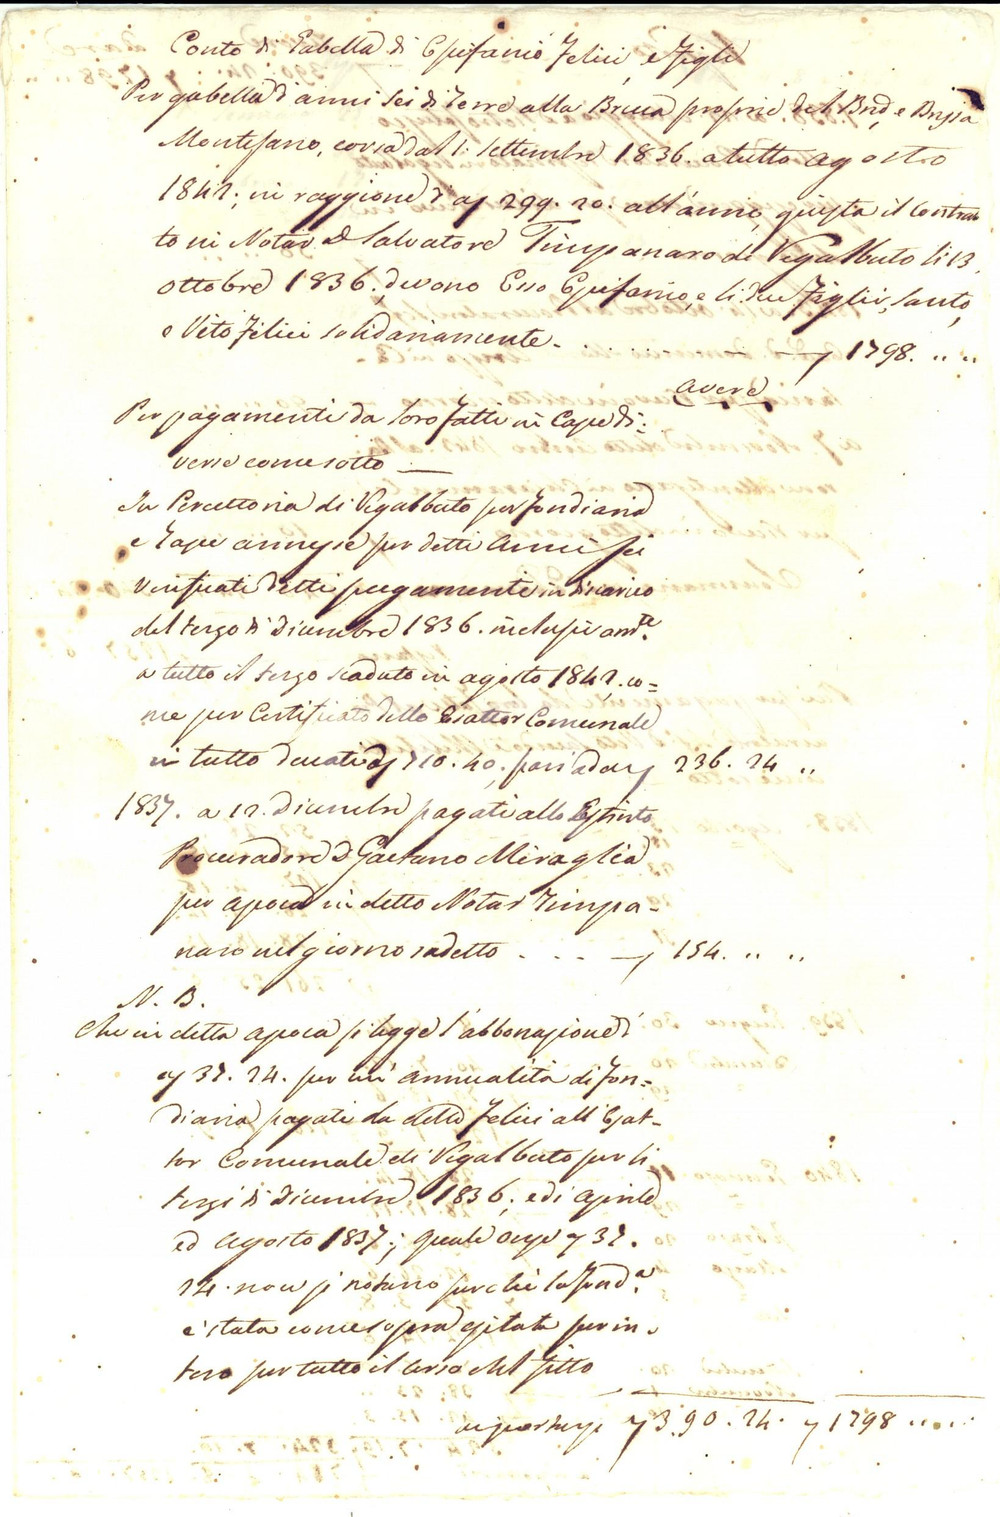 Conto di Gabella di Epifanio Felici, e Figli
Per gabella d'anni sei di Terre alla Bruca proprie del
Montesano, corsa dal 1: settembre 1836. a tutto agosto
1842; in raggione d' oz 299. 20. all'anno, giusta il contrat
to in Notar D. Salvatore Timpanaro di Regalbuto li 13.
ottobre 1836. devono Esso Epifanio, e li due Figli, Santo,
e Vito Felici solidariamente - . . . . . . . . . . 1798. " "
avere
Per pagamenti da loro fatti in Casse di:
verse come sotto —
In Percettoria di Regalbuto per fondiaria
e Tasse annesse per detti anni sei
verificati detti pagamenti in discarico
del terzo di Dicembre 1836. inclusivam.te
a tutto il terzo scaduto in agosto 1842. co=
me per Certificato dello Esattor Comunale
in tutto ducati 710. 40, pari ad oz 236. 24 "
1837. a 12. Dicembre pagati allo Estinto
Procuradore D. Gaetano Miraglia
per apoca in detto Notar Timpa-
naro nel giorno sudetto . . . — 154. " "
N. B.
Che in detta apoca si legge l'abbonazione d'
oz 37. 24. per un' annualità di fon=
diaria pagati da detto Felici all' Esat-
tor Comunale di Regalbuto per li
terzi di Dicembre 1836, e di aprile
ed agosto 1837; quali 37.
24. non si notano perchè la fond.a
è stata come sopra esitata per in-
tero per tutto il corso del fitto
390. 24. 1798 " "